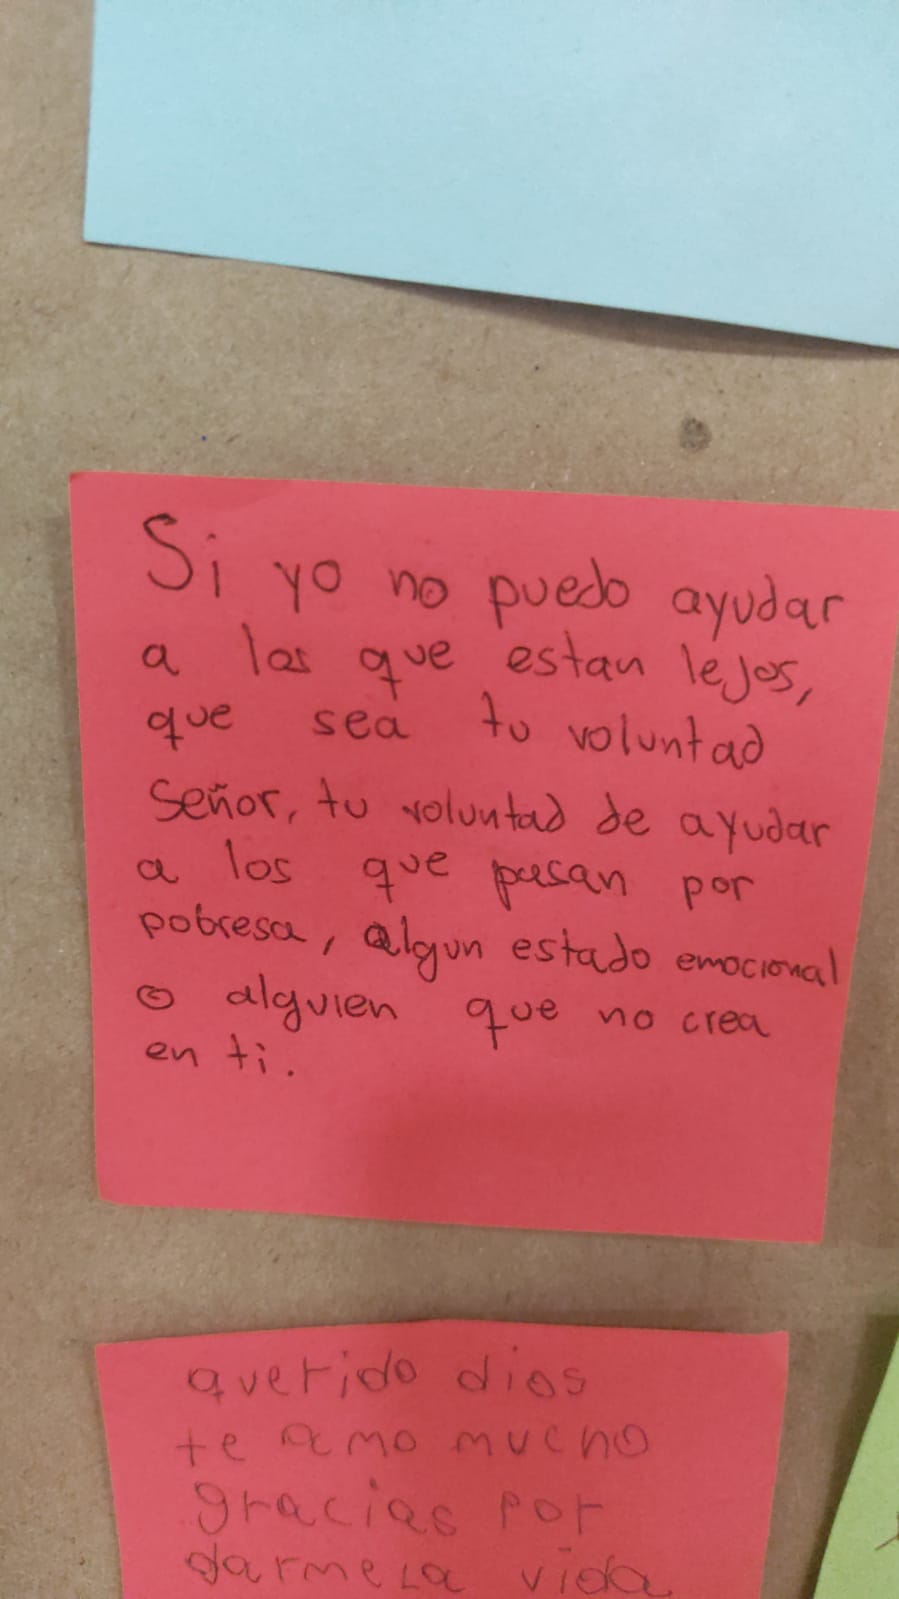 Si yo no puedo ayudar
a los que estan lejos,
que sea tu voluntad
Señor, tu voluntad de ayudar
a los que pasan por
pobresa, algun estado emocional
o alguien que no crea
en ti.
querido dios
te amo mucho
gracias por
darmela vida